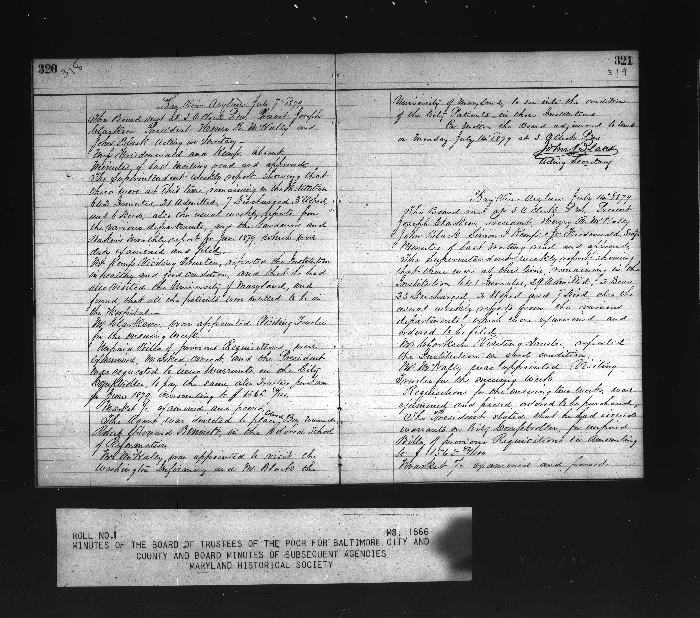 320
Bay View Asylum July 7th 1879
The Board met at 3 O'Clock P.M. Present Joseph
Clackson President Thomas B. McKaley and
John Black Acting as Secretary
absent
Minutes of last meeting read and approved
The Superintendents weekly report showing that
there were at this time remaining in the Institution
Inmates, Admitted, 7 Discharged
also the usual weekly reports from
the various departments, and the Wardens and
monthly report for June 1879 which were
duly examined and filed.
Mr Kemp Visiting Trustee, reported the Institution
in healthy and good condition, and that he had
also visited the University of Maryland, and
found that all the patients were entitled to be in
the Hospital.
Mr Clackson was appointed Visiting Trustee
for the ensuing week.
Unpaid Bills of previous Requisitions were
examined, marked correct, and the President
was requested to issue Warrants on the City
Comptroller to pay the same also Trustees per diem
for June 1879, amounting to $ 1565
Market examined and passed.
The Comt was directed to place, Boy named
Bennett, in the School
of Reformation
Mr McKaley was appointed to visit the
Washington Infirmary and Mr Black the
321
319
University of Maryland, to see into the condition
of the City Patients in those Institutions
On motion the Board adjourned to meet
on Monday July 14th 1879 at 3 O'Clock P.M.
John Black
Acting Secretary
Bay View Asylum July 14th 1879
The Board met at 3 O'Clock P.M. Present
Joseph Clackson, President, Thomas B. McKaley
John Black Simon J Kemp &
Minutes of last meeting read and approved.
The Superintendents weekly report showing
that there were at this time, remaining in the
Institution Inmates, 29 Admitted, 3 Born
33 Discharged, 2 Eloped and 7 Died also the
usual weekly reports from the various
departments which were examined and
ordered to be filed.
Mr Clackson Visiting Trustee, reported
the Institution in good condition
Mr McKaley was appointed Visiting
Trustee for the ensuing week
Requisitions for the ensuing two weeks were
examined and passed, ordered to be purchased.
The President stated that he had issued
warrants on City Comptroller for unpaid
Bills of previous Requisitions amounting
to $ 1565
Market examined and passed.
ROLL NO.1 MS. 1866
MINUTES OF THE BOARD OF TRUSTEES OF THE POOR FOR BALTIMORE CITY AND
COUNTY AND BOARD MINUTES OF SUBSEQUENT AGENCIES
MARYLAND HISTORICAL SOCIETY